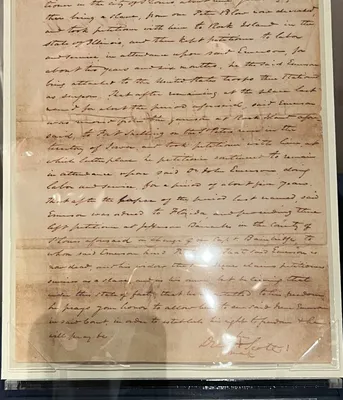 there being a slave, from one Peter Blow now deceased,
and took petitioner with him to Rock Island in the
State of Illinois, and then kept petitioner to labor
and service, in attendance upon said Emerson for
about two years and six months, he the said Emerson
being attached to the United States troops there stationed
as surgeon. That after remaining at the place last
named for about the period aforesaid, said Emerson
was removed from the garrison at Rock Island afore
said, to Fort Snelling on the St Peters river in the
territory of Iowa, and took petitioner with him at
which latter place petitioner continued to remain
in attendance upon said Dr John Emerson doing
labor and service, for a period of about five years.
That after the lapse of the period last named, said
Emerson was ordered to Florida and proceeding there
left petitioner at Jefferson Barracks in the County of
St Louis aforesaid in charge of one Capt Bainbridge to
whom said Emerson hired petitioner that said Emerson is
now dead, and his widow
service as a slave, and as his owner, but believing that
under this state of facts, that he is entitled to his freedom
he prays your honor to allow him to sue said Irene Emerson
in said Court, in order to establish his right to freedom & he
will pray &c
Dred Scott